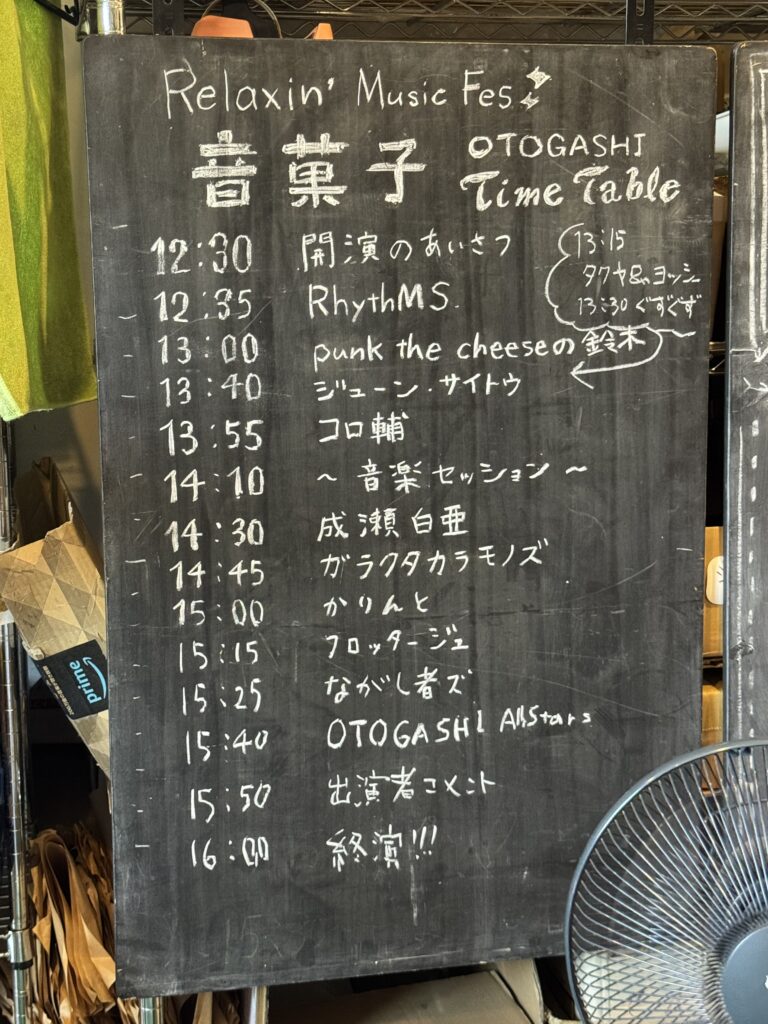 Relaxin' Music Fes
音菓子 OTOGASHI
Time Table
12:30 開演のあいさつ
12:35 RhythMS.
13:00 punk the cheeseの鈴木
13:15
タクヤ&ヨッシー
13:30 ぐずぐず
13:40 ジューン・サイトウ
13:55 コロ輔
14:10 ~ 音楽セッション ~
14:30 成瀬白亜
14:45 ガラクタカラモノズ
15:00 かりんと
15:15 フロッタージュ
15:25 ながし者ズ
15:40 OTOGASHI AllStars
15:50 出演者コメント
16:00 終演!!!
prime